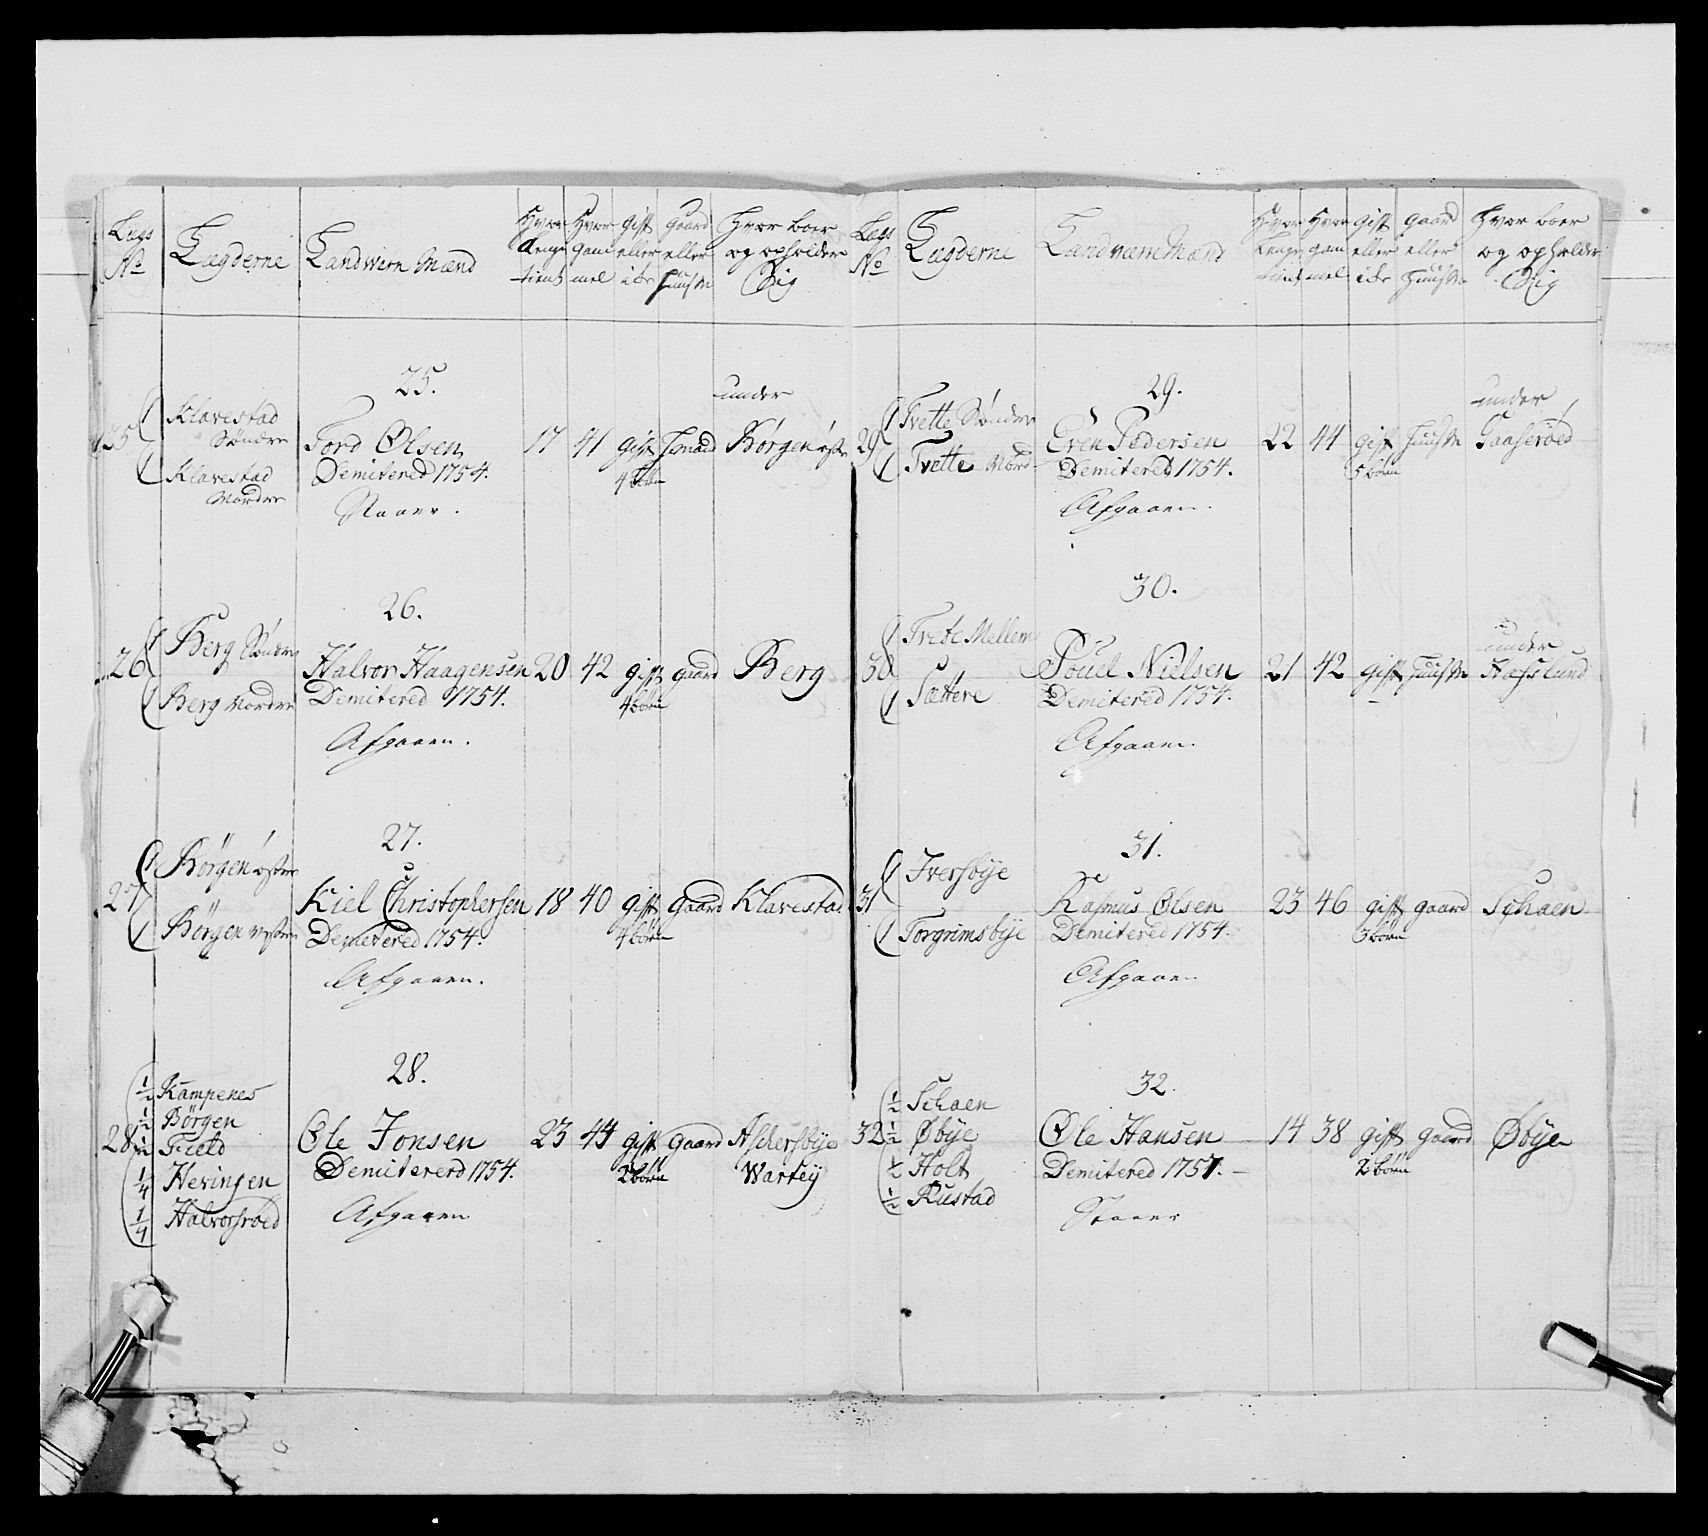 Legs No Lægderne Landvern Mænd Hvor længe tient Hvor gammel gift eller ikke gaard eller Huusm Hvor boer og opholder Sig
25.
Klavestad Søndre
Klavestad Nordre
25 Tord Olsen 17 41 gift under Börgen øst
Demitered 1754. 4 börn
Staaer.
26.
Berg Søndre
Berg Nordre
26 Halvor Haagensen 20 42 gift gaard Berg
Demitered 1754. 4 börn
Afgaaen.
27.
Börgen østre
Börgen vestre
27 Kiel Christophersen 18 40 gift gaard Klavestad
Demitered 1754. 4 börn
Afgaaen.
28.
1/2 Kampenes
1/2 Börgen
1/2 Field
1/4 Hevingen
1/4 Halvorsroed
28 Ole Jonsen 23 44 gift gaard Aschersbye
Demitererd 1754. 2 börn Warteij
Afgaaen
Legs No Lægderne Landværn Mænd Hvor længe tient Hvor gammel gift eller ikke gaard eller Huusm Hvor boer og opholder Sig
29.
Tvette Søndre
Tvette Nord
29 Even Pedersen 22 44 gift Huusm under Taaseröed
Demitered 1754. 5 börn
Afgaaen.
30.
Tvete Mellem
Sættere
30 Pouel Nielsen 21 42 gift Huusm under Hafslund
Demitered 1754.
Afgaaen.
31.
Iversbye
Torgrimsbye
31 Rasmus Olsen 23 46 gift gaard Schaen
Demitered 1754. 3 börn
Afgaaen
32.
1/2 Schaen
1/2 Øbye
1/2 Holt
1/2 Rustad
32 Ole Hansen 14 38 gift gaard Øbye
Demitered 1757. 2 börn
Staaer